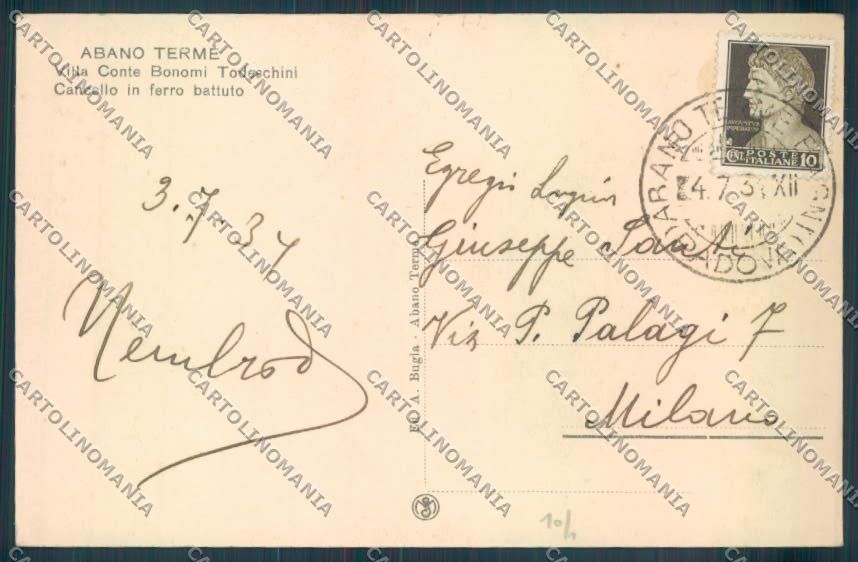 ABANO TERME
Villa Conte Bonomi Todeschini
Cancello in ferro battuto
3.7.34
Nembrod
Ed. A. Bugia - Abano Terme
POSTE
ITALIANE
CENT. 10
ABANO TERME
4.7.34 XII
(PADOVA)
Egregio
Giuseppe
Via P. Palagi 7
Milano
10/
CARTOLINOMANIA